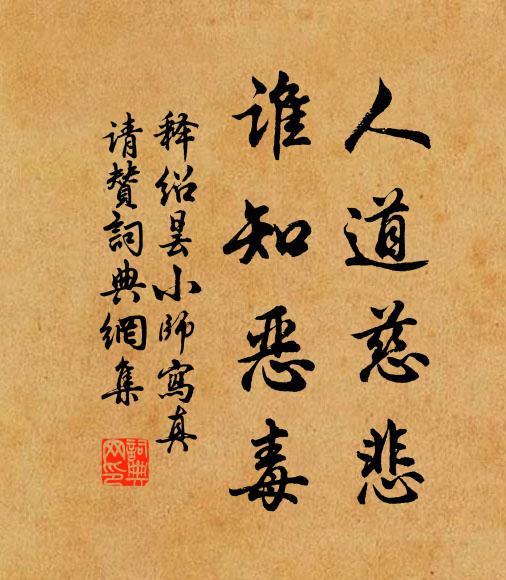 人道慈悲
谁知恶毒
释绍昙小师寫真
请赞詞典網集
詞典网印